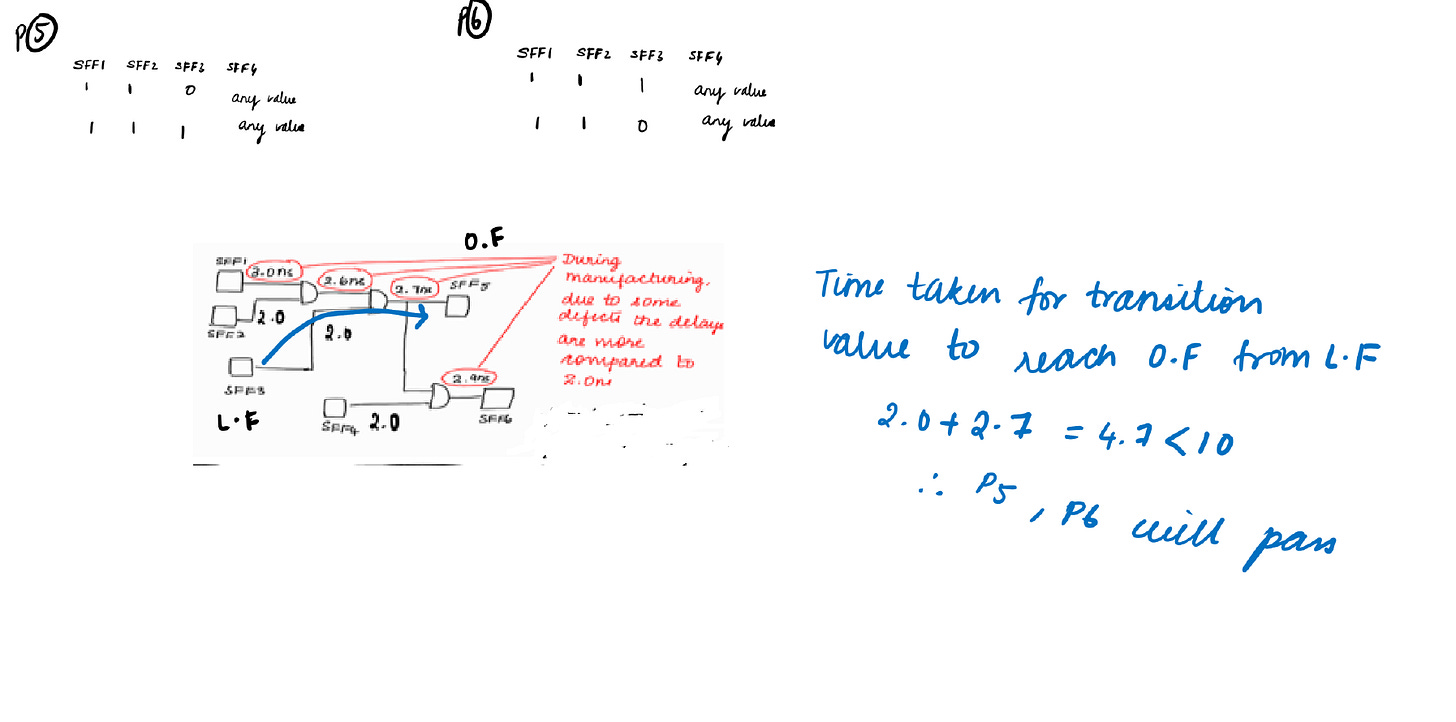 P5
SFF1 SFF2 SFF3 SFF4
1 1 0 any value
1 1 1 any value
P6
SFF1 SFF2 SFF3 SFF4
1 1 1 any value
1 1 0 any value
O.F
SFF1
3.0ns
2.6ns
2.7ns
SFF5
2.0
SFF2
2.0
SFF3
L.F
SFF4
2.0
2.9ns
SFF6
During
manufacturing,
due to some
defects the delays
are more
compared to
2.0ns
Time taken for transition
value to reach O.F from L.F
2.0+2.7 = 4.7<10
∴ P5, P6 will pass